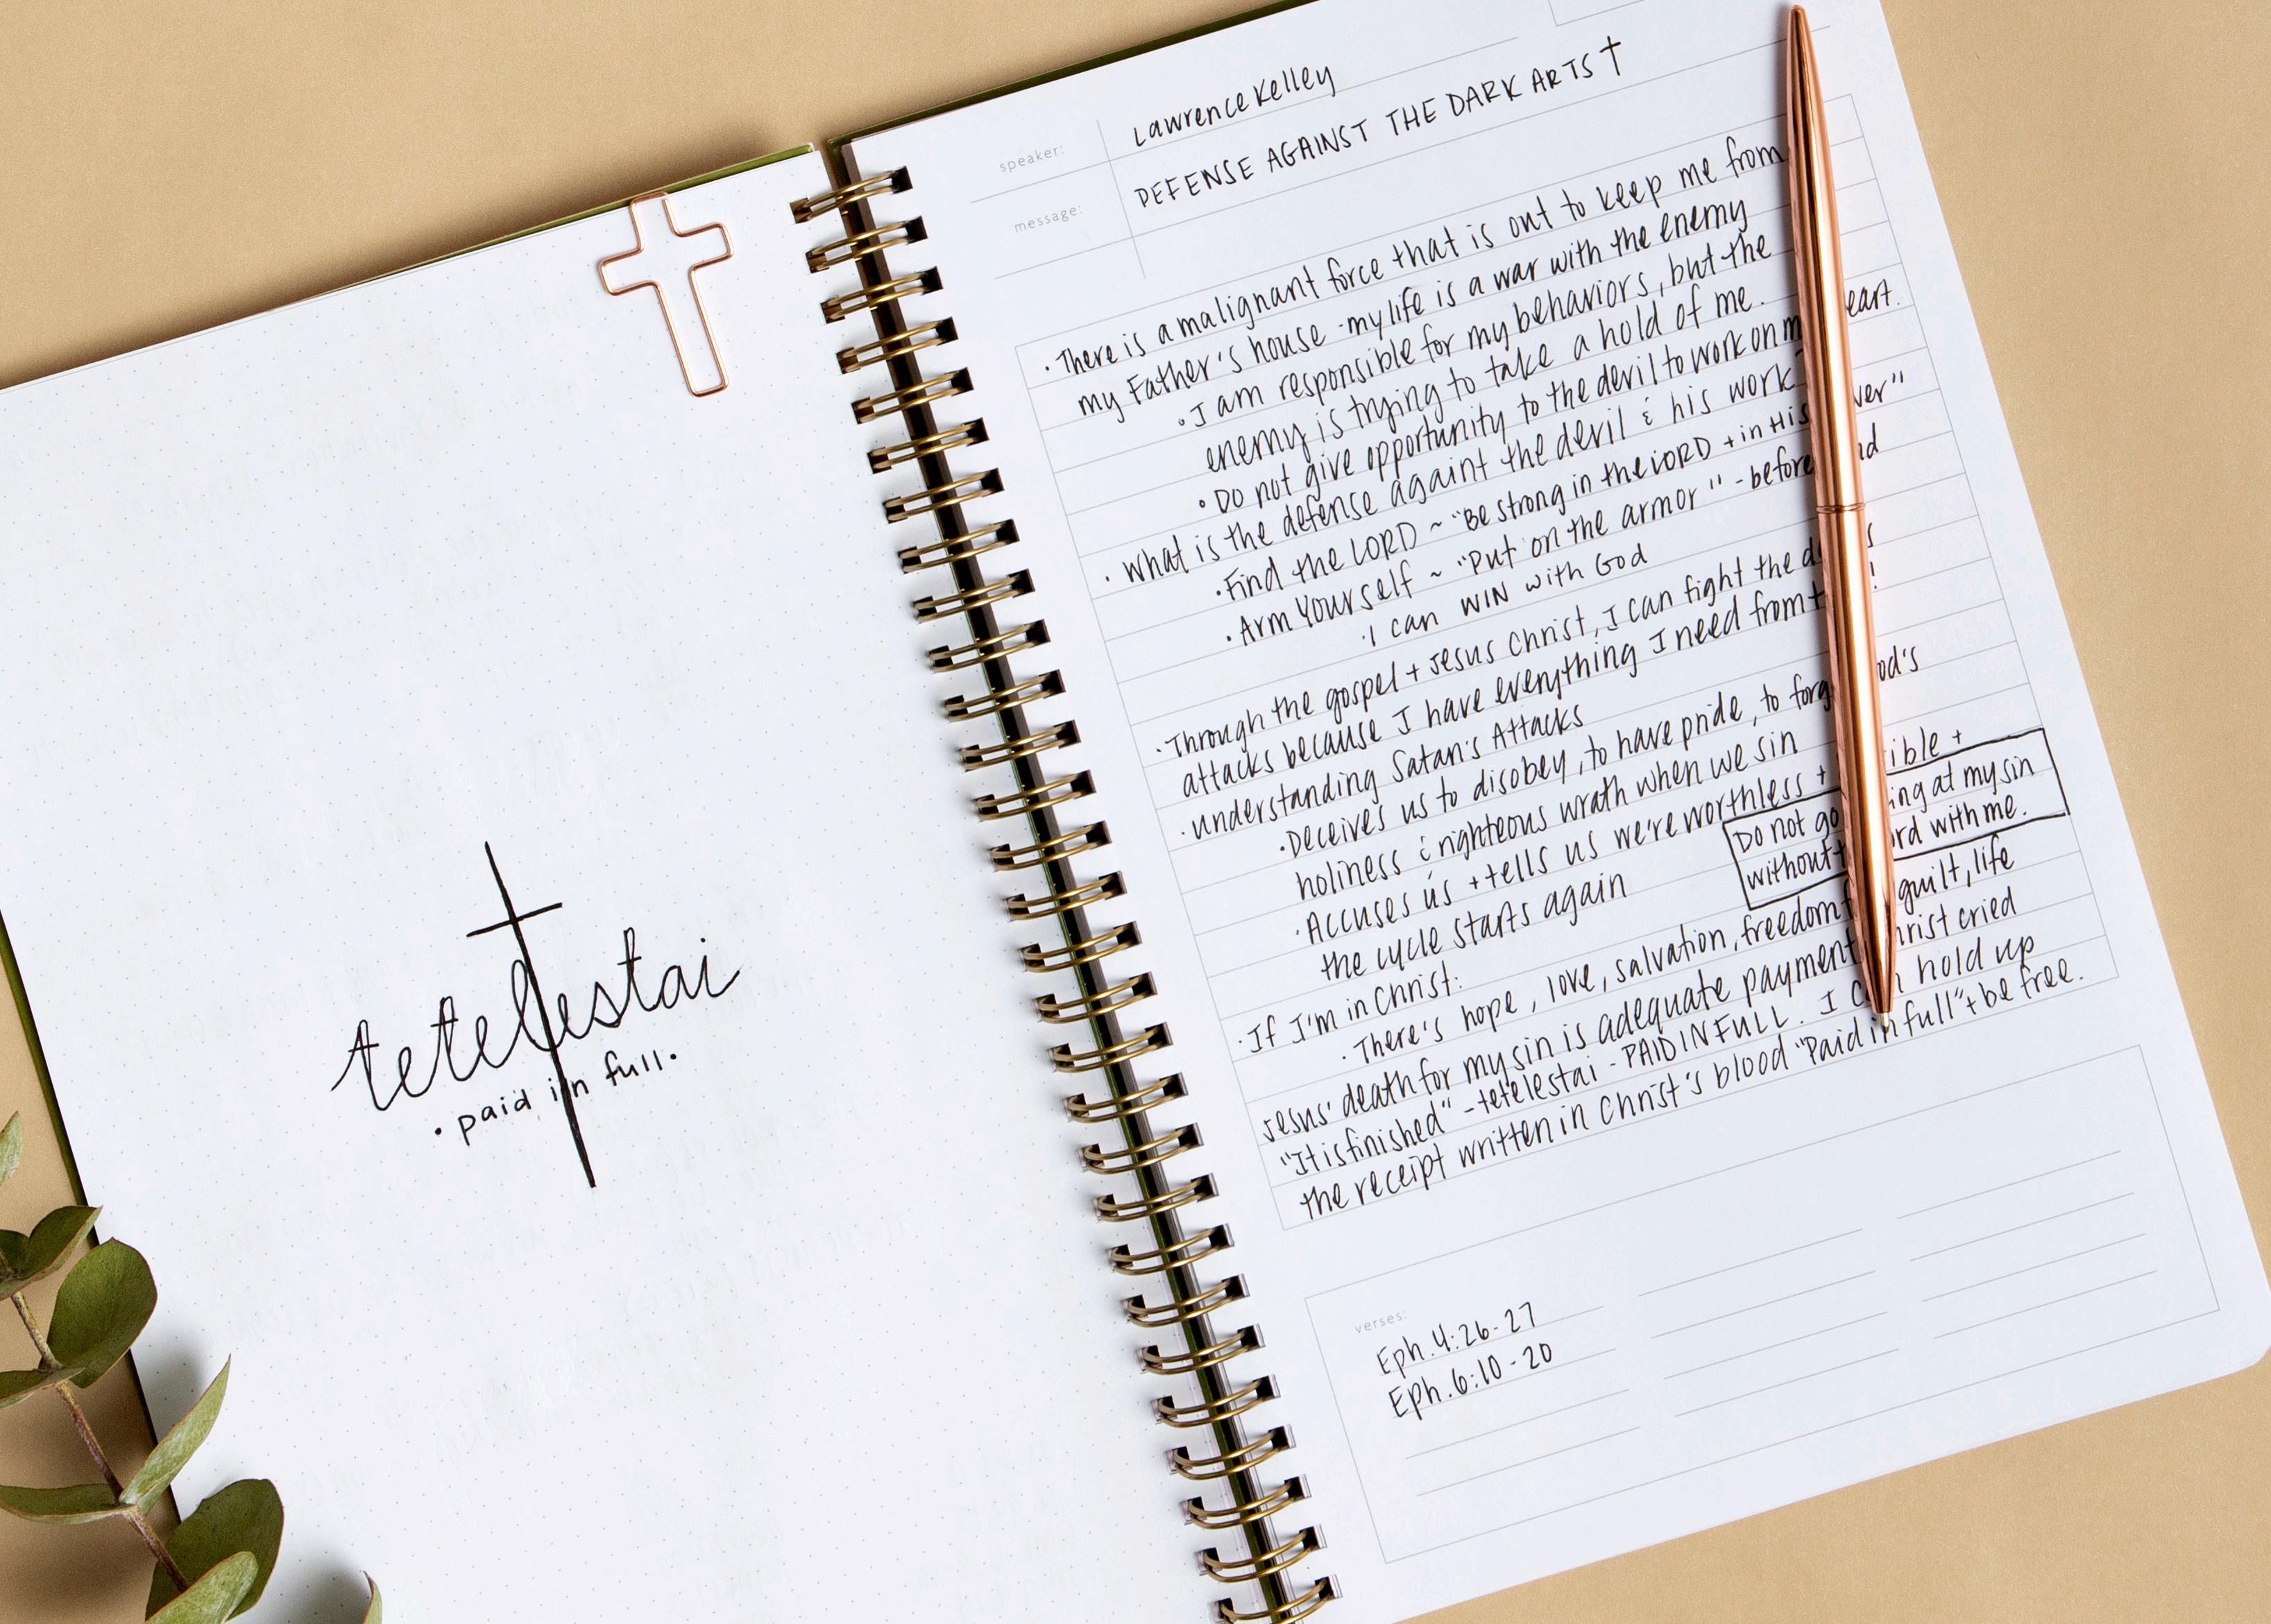 tetelestai
• paid in full •
speaker: Lawrence Kelley
message: DEFENSE AGAINST THE DARK ARTS †
• There is a malignant force that is out to keep me from
my Father's house - my life is a war with the enemy
• I am responsible for my behaviors, but the
enemy is trying to take a hold of me.
• Do not give opportunity to the devil to work on m eart.
• What is the defense againt the devil & his work
• Find the LORD ~ "Be strong in the LORD + in His ver"
• Arm Yourself ~ "Put on the armor" - before nd
• I can WIN with God
• Through the gospel + Jesus Christ, I can fight the d s
attacks because I have everything I need from !
• understanding Satan's Attacks
• Deceives us to disobey, to have pride, to forg od's
holiness & righteous wrath when we sin
• Accuses us + tells us we're worthless + ible +
the cycle starts again
Do not go ing at my sin
without ord with me.
• If I'm in Christ:
• There's hope, love, salvation, freedom guilt, life
Jesus' death for my sin is adequate payment hrist cried
"It is finished" - tetelestai - PAID IN FULL. I c n hold up
the receipt written in Christ's blood "Paid in full" + be free.
verses:
Eph. 4:26-27
Eph. 6:10-20